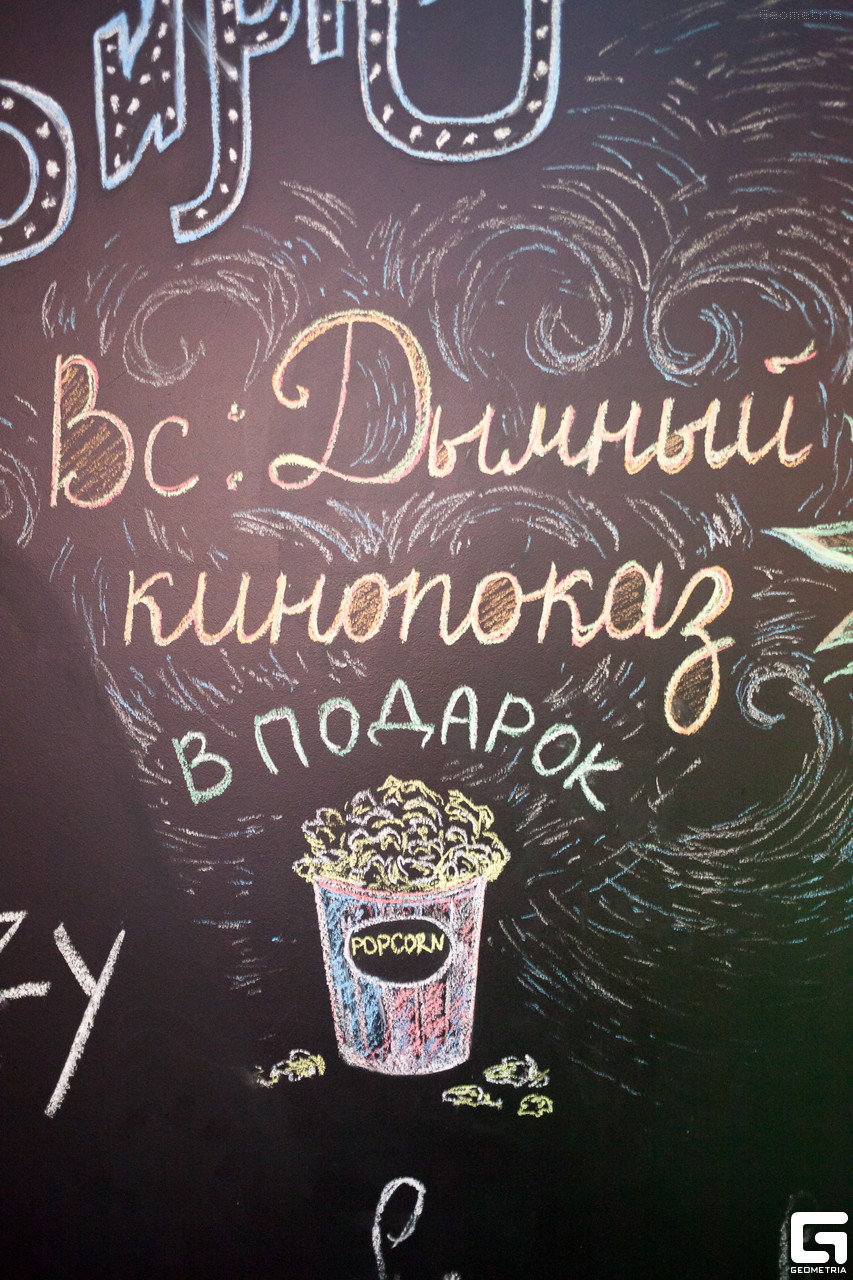 Geometria
Вс: Дымный
кинопоказ
В ПОДАРОК
POPCORN
GEOMETRIA